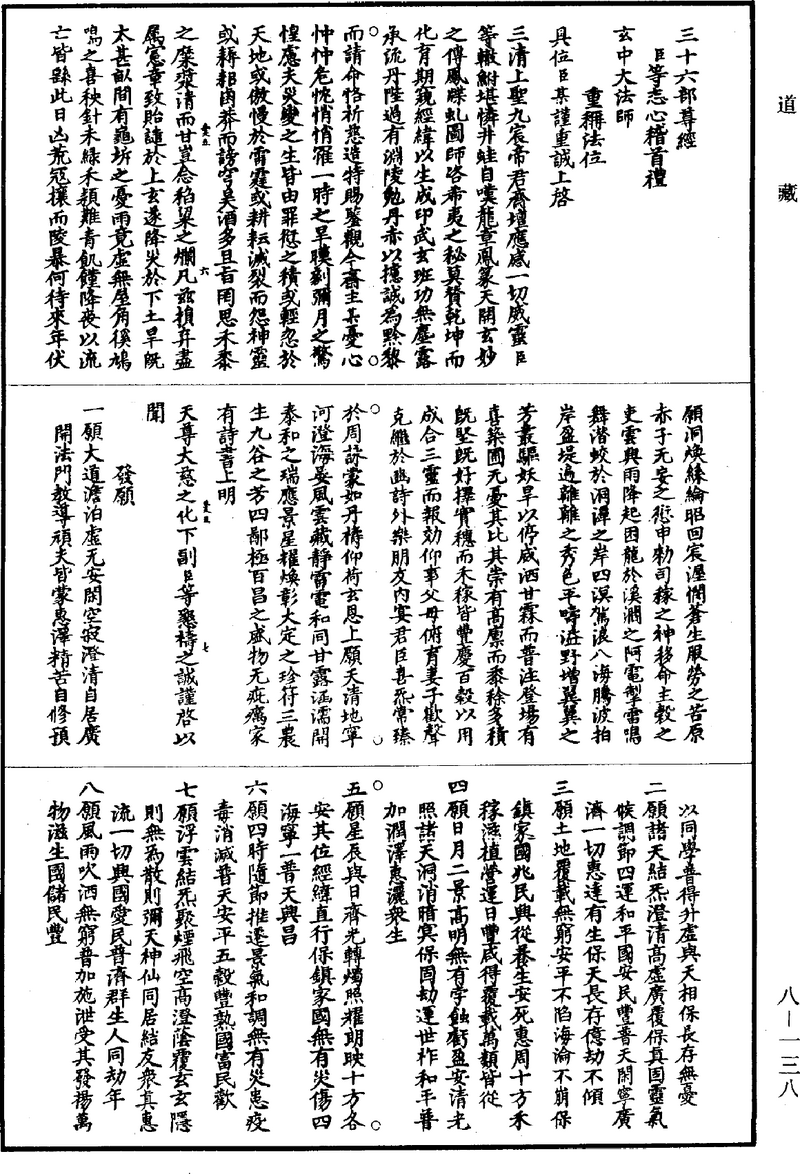 道藏
三十六部尊經
臣等志心稽首禮
玄中大法師
重稱法位
具位臣某謹重誠上啓
三清上聖九宸帝君齋壇應感一切威靈臣
等轍鮒堪憐井蛙自嘆龍章鳳篆天開玄妙
之傳風牒虬圖師啓希夷之秘莫贊乾坤而
化育期窺經緯以生成印武玄班功無塵露
承流丹陛過有淵陵勉丹赤以攄誠為黔黎
而請命恪祈慈造特賜鑒觀今齋主某憂心
忡忡危悰悄悄罹一時之旱暵劇彌月之驚
惶慮夫災變之生皆由罪愆之積或輕忽於
天地或傲慢於雷霆或耕耘滅裂而怨神靈
或耨耔鹵莽而謗穹昊酒多且旨罔思禾黍
之糜漿清而甘豈念稻粱之爛凡茲損弃盡
屬憲章致貽譴於上玄遂降災於下土旱既
太甚畝間有龜坼之憂雨竟虛無屋角徯鳩
鳴之喜秧針未綠禾穎難青飢饉降夜以流
亡皆繇此日凶荒寇攘而陵暴何待來年伏
願洞煥絲綸昭回宸渥憫蒼生服勞之苦原
赤子无妄之愆申勅司稼之神移命主穀之
吏雲興雨降起困龍於溪澗之阿電掣雷鳴
舞潛蛟於洞潭之岸四溟駕浪八海騰波拍
岸盈堤過離離之秀色平疇遊野增翼翼之
芳叢驅妖旱以停威洒甘霖而普注登場有
喜樂國无憂其比其崇有高廪而黍稌多積
既堅既好擇實穗而禾稼皆豐慶百穀以用
成合三靈而報効仰事父母俯育妻子歡聲
克繼於豳詩外樂朋友內宴君臣喜炁常臻
於周詠蒙如丹禱仰荷玄恩上願天清地寧
河澄海晏風雲藏靜雷電和同甘露涵濡開
泰和之瑞應景星耀煥彰大定之珍符三農
生九谷之芳四鄙極百昌之盛物无疵癘家
有詩書上明
天尊大慈之化下副臣等懇禱之誠謹啓以
聞
發願
一願大道澹泊虛无安閑空寂澄清自居廣
開法門教導頑夫皆蒙惠澤精苦自修預
以同學普得升虛與天相保長存無憂
二願諸天結炁澄清高虛廣覆保真固靈氣
候調節四運和平國安民豐普天閑寧廣
濟一切惠達有生保天長存億劫不傾
三願土地覆載無窮安平不陷海淪不崩保
鎮家國兆民興從養生安死惠周十方禾
稼滋植營運日豐咸得覆載萬類皆從
四願日月二景高明無有孛蝕虧盈安清光
照諸天洞消暗冥保固劫運世祚和平普
加潤澤惠灑眾生
五願星辰與日齊光轉燭照耀朗映十方各
安其位經緯直行保鎮家國無有災傷四
海寧一普天興昌
六願四時隨節推遷景氣和調無有災患疫
毒消滅普天安平五穀豐熟國富民歡
七願浮雲結炁聚煙飛空高澄蔭覆玄玄隱
則無為散則彌天神仙同居結友眾真惠
流一切興國愛民普濟群生人同劫年
八願風雨吹洒無窮普加施泄受其發揚萬
物滋生國儲民豐
八—一三八